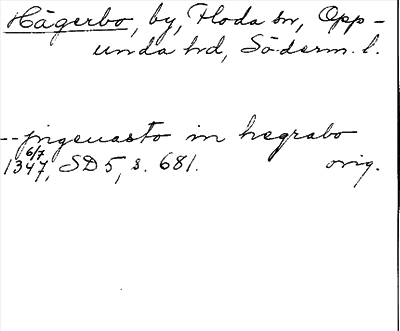 Hägerbo, by, Floda sn, Opp-
unda hd, Söderm. l.
-- jngeuasto in hegrabo
1347 6/7, SD 5, s. 681. orig.